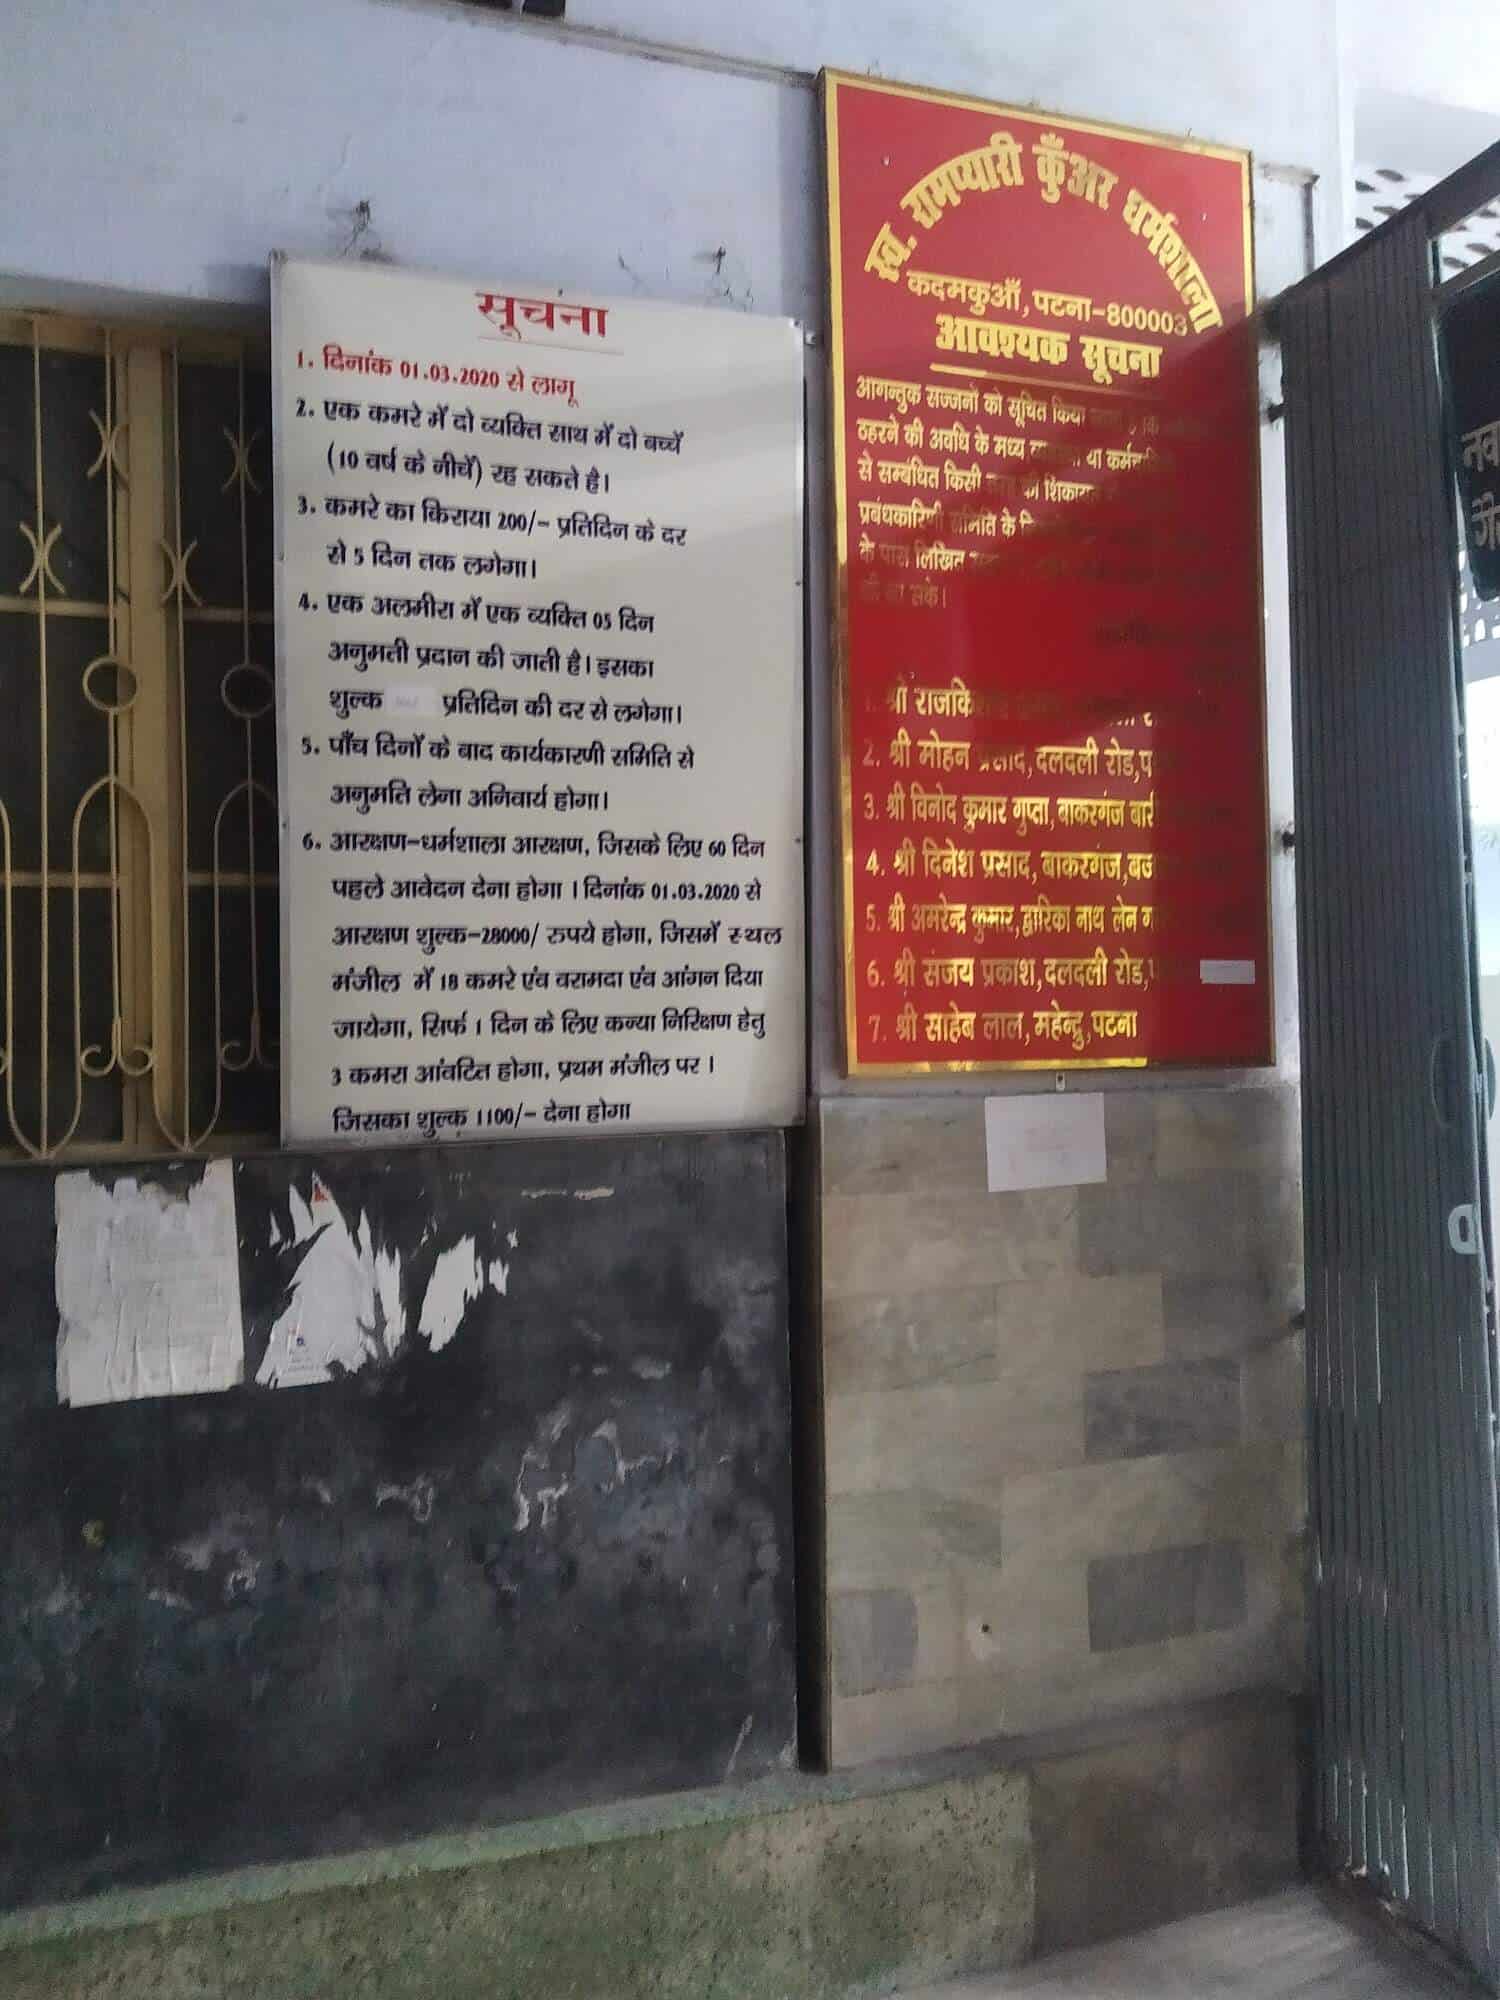 सूचना
1. दिनांक 01.03.2020 से लागू
2. एक कमरे में दो व्यक्ति साथ में दो बच्चें
(10 वर्ष के नीचें) रह सकते है।
3. कमरे का किराया 200/- प्रतिदिन के दर
से 5 दिन तक लगेगा।
4. एक अलमीरा में एक व्यक्ति 05 दिन
अनुमती प्रदान की जाती है। इसका
शुल्क प्रतिदिन की दर से लगेगा।
5. पाँच दिनों के बाद कार्यकारणी समिति से
अनुमति लेना अनिवार्य होगा।
6. आरक्षण-धर्मशाला आरक्षण, जिसके लिए 60 दिन
पहले आवेदन देना होगा । दिनांक 01.03.2020 से
आरक्षण शुल्क-28000/ रुपये होगा, जिसमें स्थल
मंजील में 18 कमरे एंव वरामदा एंव आंगन दिया
जायेगा, सिर्फ 1 दिन के लिए कन्या निरिक्षण हेतु
3 कमरा आंवटित होगा, प्रथम मंजील पर ।
जिसका शुल्क 1100/- देना होगा
स्व. रामप्यारी कुँअर धर्मशाला
कदमकुआँ, पटना-800003
आवश्यक सूचना
आगन्तुक सज्जनों को सूचित किया
ठहरने की अवधि के मध्य या
से सम्बंधित किसी की शिकायत
प्रबंधकारिणी समिति के
के पास लिखित
की जा सके।
1. श्री
2. श्री मोहन प्रसाद, दलदली रोड,
3. श्री विनोद कुमार गुप्ता, बाकरगंज
4. श्री दिनेश प्रसाद, बाकरगंज,
5. श्री अमरेन्द्र कुमार, द्वारिका नाथ लेन
6. श्री संजय प्रकाश, दलदली रोड,
7. श्री साहेब लाल, महेन्द्रु, पटना